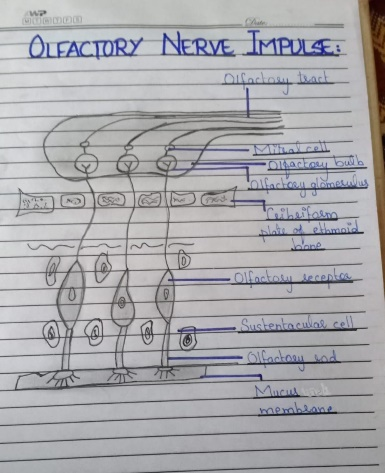 WP
Date
OLFACTORY NERVE IMPULSE:
Olfactory tract
Mitral cell
Olfactory bulb
Olfactory glomerulus
Cribriform
plate of ethmoid
bone
Olfactory receptor
Sustentacular cell
Olfactory rod
Mucus
membrane